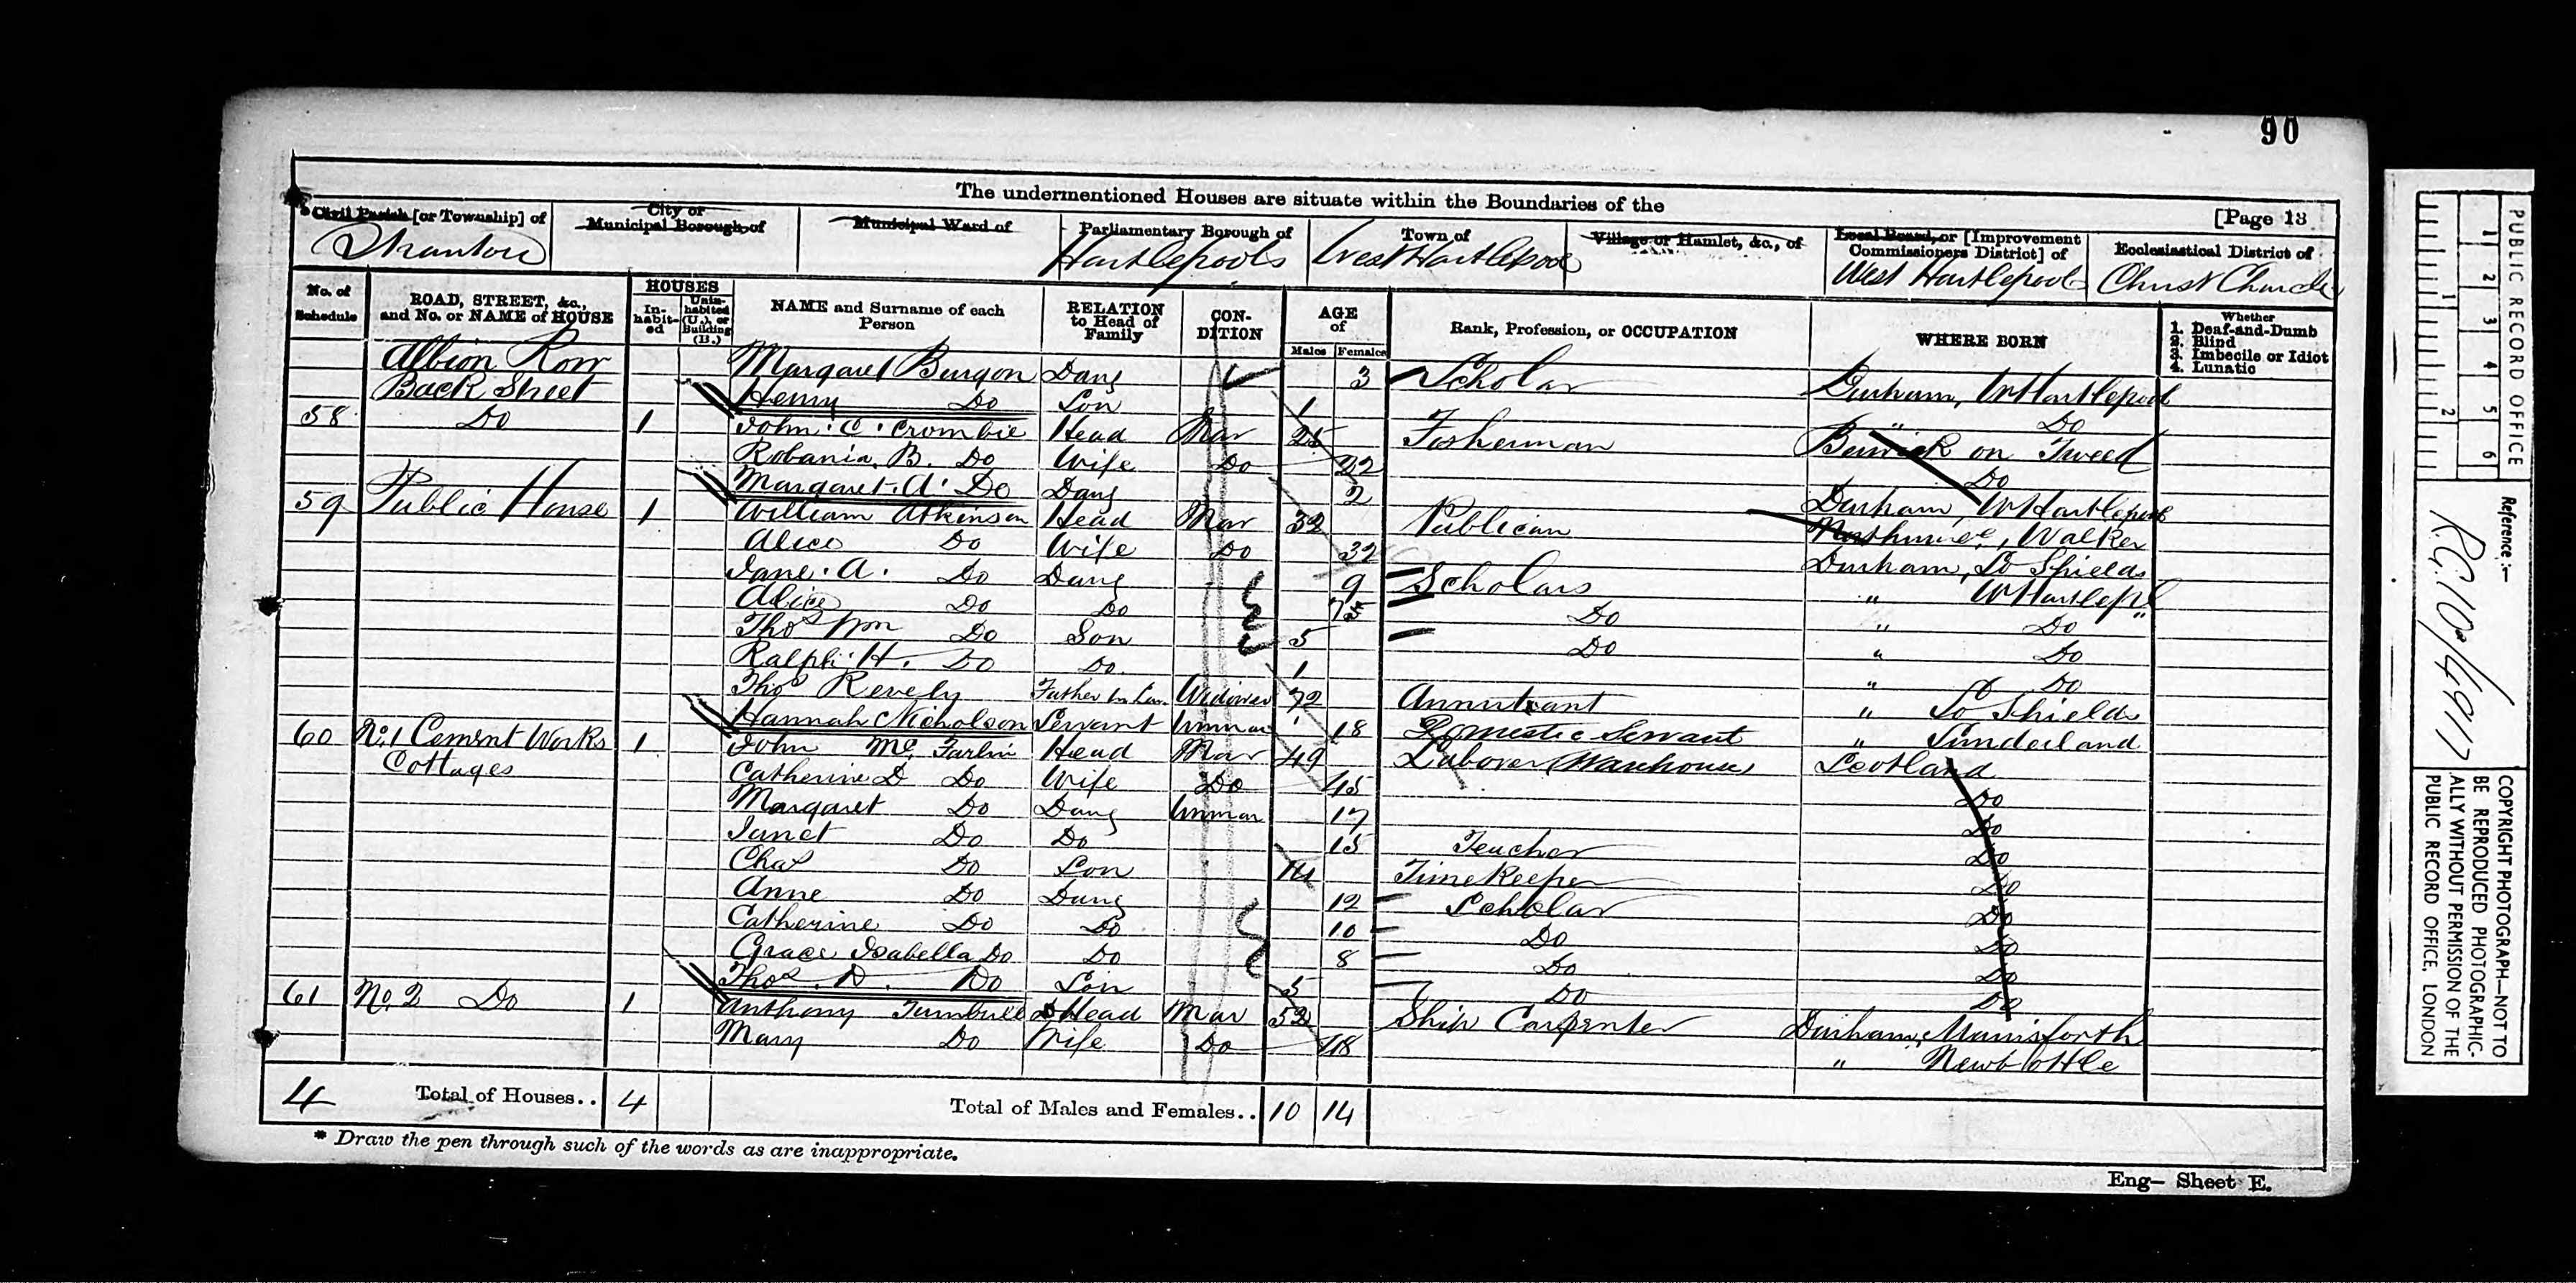 90
The undermentioned Houses are situate within the Boundaries of the
[Page 13
Civil Parish [or Township] of
City or Municipal Borough of
Municipal Ward of
Parliamentary Borough of
Town of
Village or Hamlet, &c., of
Local Board, or [Improvement Commissioners District] of
Ecclesiastical District of
Stranton
Hartlepools
West Hartlepool
West Hartlepool
Christ Church
No. of Schedule
ROAD, STREET, &c., and No. or NAME of HOUSE
HOUSES
In-habit-ed
Unin-habited (U.), or Building (B.)
NAME and Surname of each Person
RELATION to Head of Family
CON-DITION
AGE of
Males
Females
Rank, Profession, or OCCUPATION
WHERE BORN
Whether
1. Deaf-and-Dumb
2. Blind
3. Imbecile or Idiot
4. Lunatic
Albion Row Margaret Burgon Daug 3 Scholar Durham, W Hartlepool
Back Street Henry Do Son 1 " Do
58 Do 1 John . C . Crombie Head Mar 25 Fisherman Berwick on Tweed
Robania. B. Do Wife Do 22 Do
Margaret. A. Do Daug 2 Durham, W Hartlepool
59 Public House 1 William Atkinson Head Mar 32 Publican Walker
Alice Do Wife Do 32 Durham, So Shields
Jane. A. Do Daug 9 Scholars " W Hartlepl
Alice Do Do Do " Do
Thos Wm Do Son 5 Do " Do
Ralph. H. Do Do 1 " Do
Thos Revely Father in Law Widower 72 Annuitant " So Shields
Hannah Nicholson Servant Unmar 18 Domestic Servant " Sunderland
60 No. 1 Cement Works 1 John Mc Farlin Head Mar 49 Labover (Warehouse) Scotland
Cottages Catherine D Do Wife Do 45 Do
Margaret Do Daug Unmar 17 Do
Janet Do Do 15 Teacher Do
Chas Do Son 14 Time Keeper Do
Anne Do Daug 12 Scholar Do
Catherine Do Do 10 Do Do
Grace Isabella Do Do 8 Do Do
Thos. D. Do Son 5 Do Do
61 No. 2 Do 1 Anthony Turnbull Head Mar 52 Ship Carpenter Durham,
Mary Do Wife Do 48 " Newbottle
4 Total of Houses.. 4 Total of Males and Females.. 10 14
* Draw the pen through such of the words as are inappropriate.
Eng— Sheet E.
PUBLIC RECORD OFFICE
1 2 3 4 5 6
1 2
Reference:—
R.G. 10/4917
COPYRIGHT PHOTOGRAPH—NOT TO
BE REPRODUCED PHOTOGRAPHIC-
ALLY WITHOUT PERMISSION OF THE
PUBLIC RECORD OFFICE, LONDON